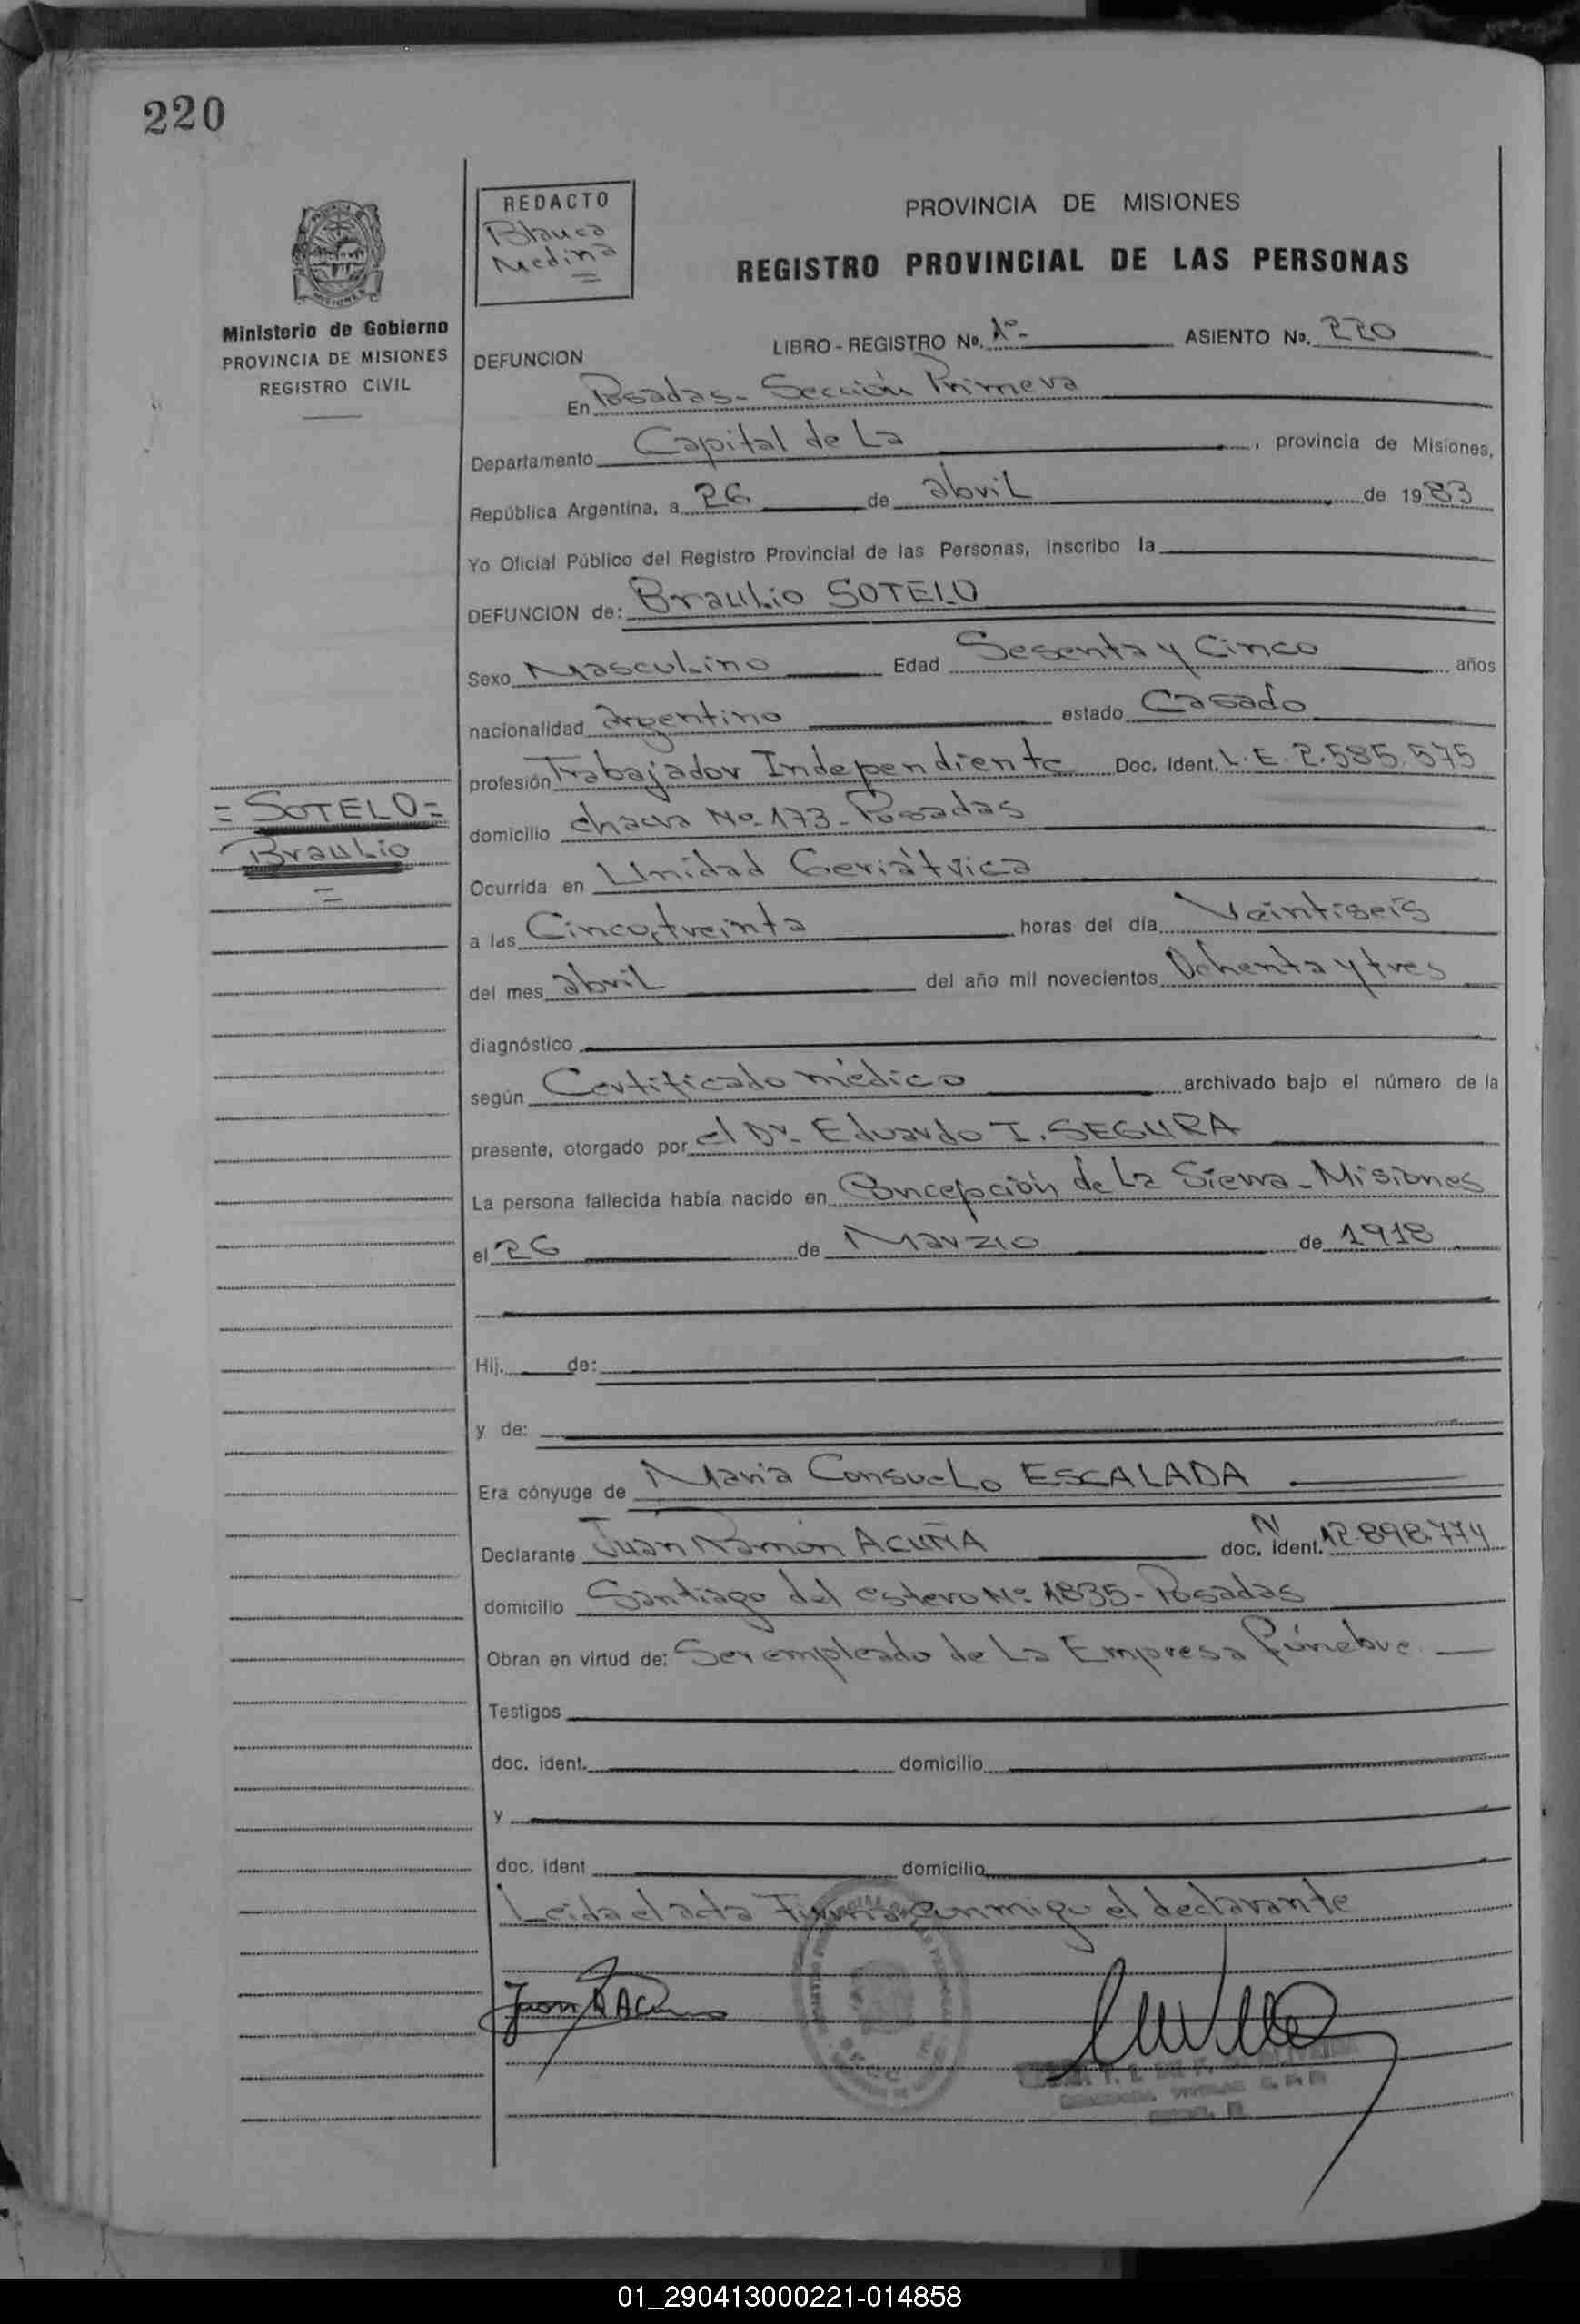 220
REDACTO
Blanca
Medina
Ministerio de Gobierno
PROVINCIA DE MISIONES
REGISTRO CIVIL
PROVINCIA DE MISIONES
REGISTRO PROVINCIAL DE LAS PERSONAS
DEFUNCION LIBRO - REGISTRO No. 1º- ASIENTO No. 220
En Posadas - Sección Primera
Departamento Capital de La, provincia de Misiones,
República Argentina, a 26 de abril de 1983
Yo Oficial Público del Registro Provincial de las Personas, inscribo la
DEFUNCION de: Braulio SOTELO
Sexo Masculino Edad Sesenta y Cinco años
nacionalidad argentino estado Casado
profesión Trabajador Independiente Doc. Ident. L.E. 2.585.575
= SOTELO =
Braulio
=
domicilio chacra Nº 173 - Posadas
Ocurrida en Unidad Geriátrica
a las Cinco, treinta horas del día Veintiseis
del mes abril del año mil novecientos Ochenta y tres
diagnóstico
según Certificado médico archivado bajo el número de la
presente, otorgado por el Dr. Eduardo I. SEGURA
La persona fallecida había nacido en Concepción de La Sierra - Misiones
el 26 de Marzo de 1918
Hij. de:
y de:
Era cónyuge de María Consuelo ESCALADA
Declarante Juan Ramón ACUÑA doc. ident. N 12.898.774
domicilio Santiago del estero Nº 1835 - Posadas
Obran en virtud de: Ser empleado de La Empresa fúnebre.
Testigos
doc. ident. domicilio
y
doc. ident domicilio
Leida el acta Firma conmigo el declarante
Juan R Acuña
01_290413000221-014858